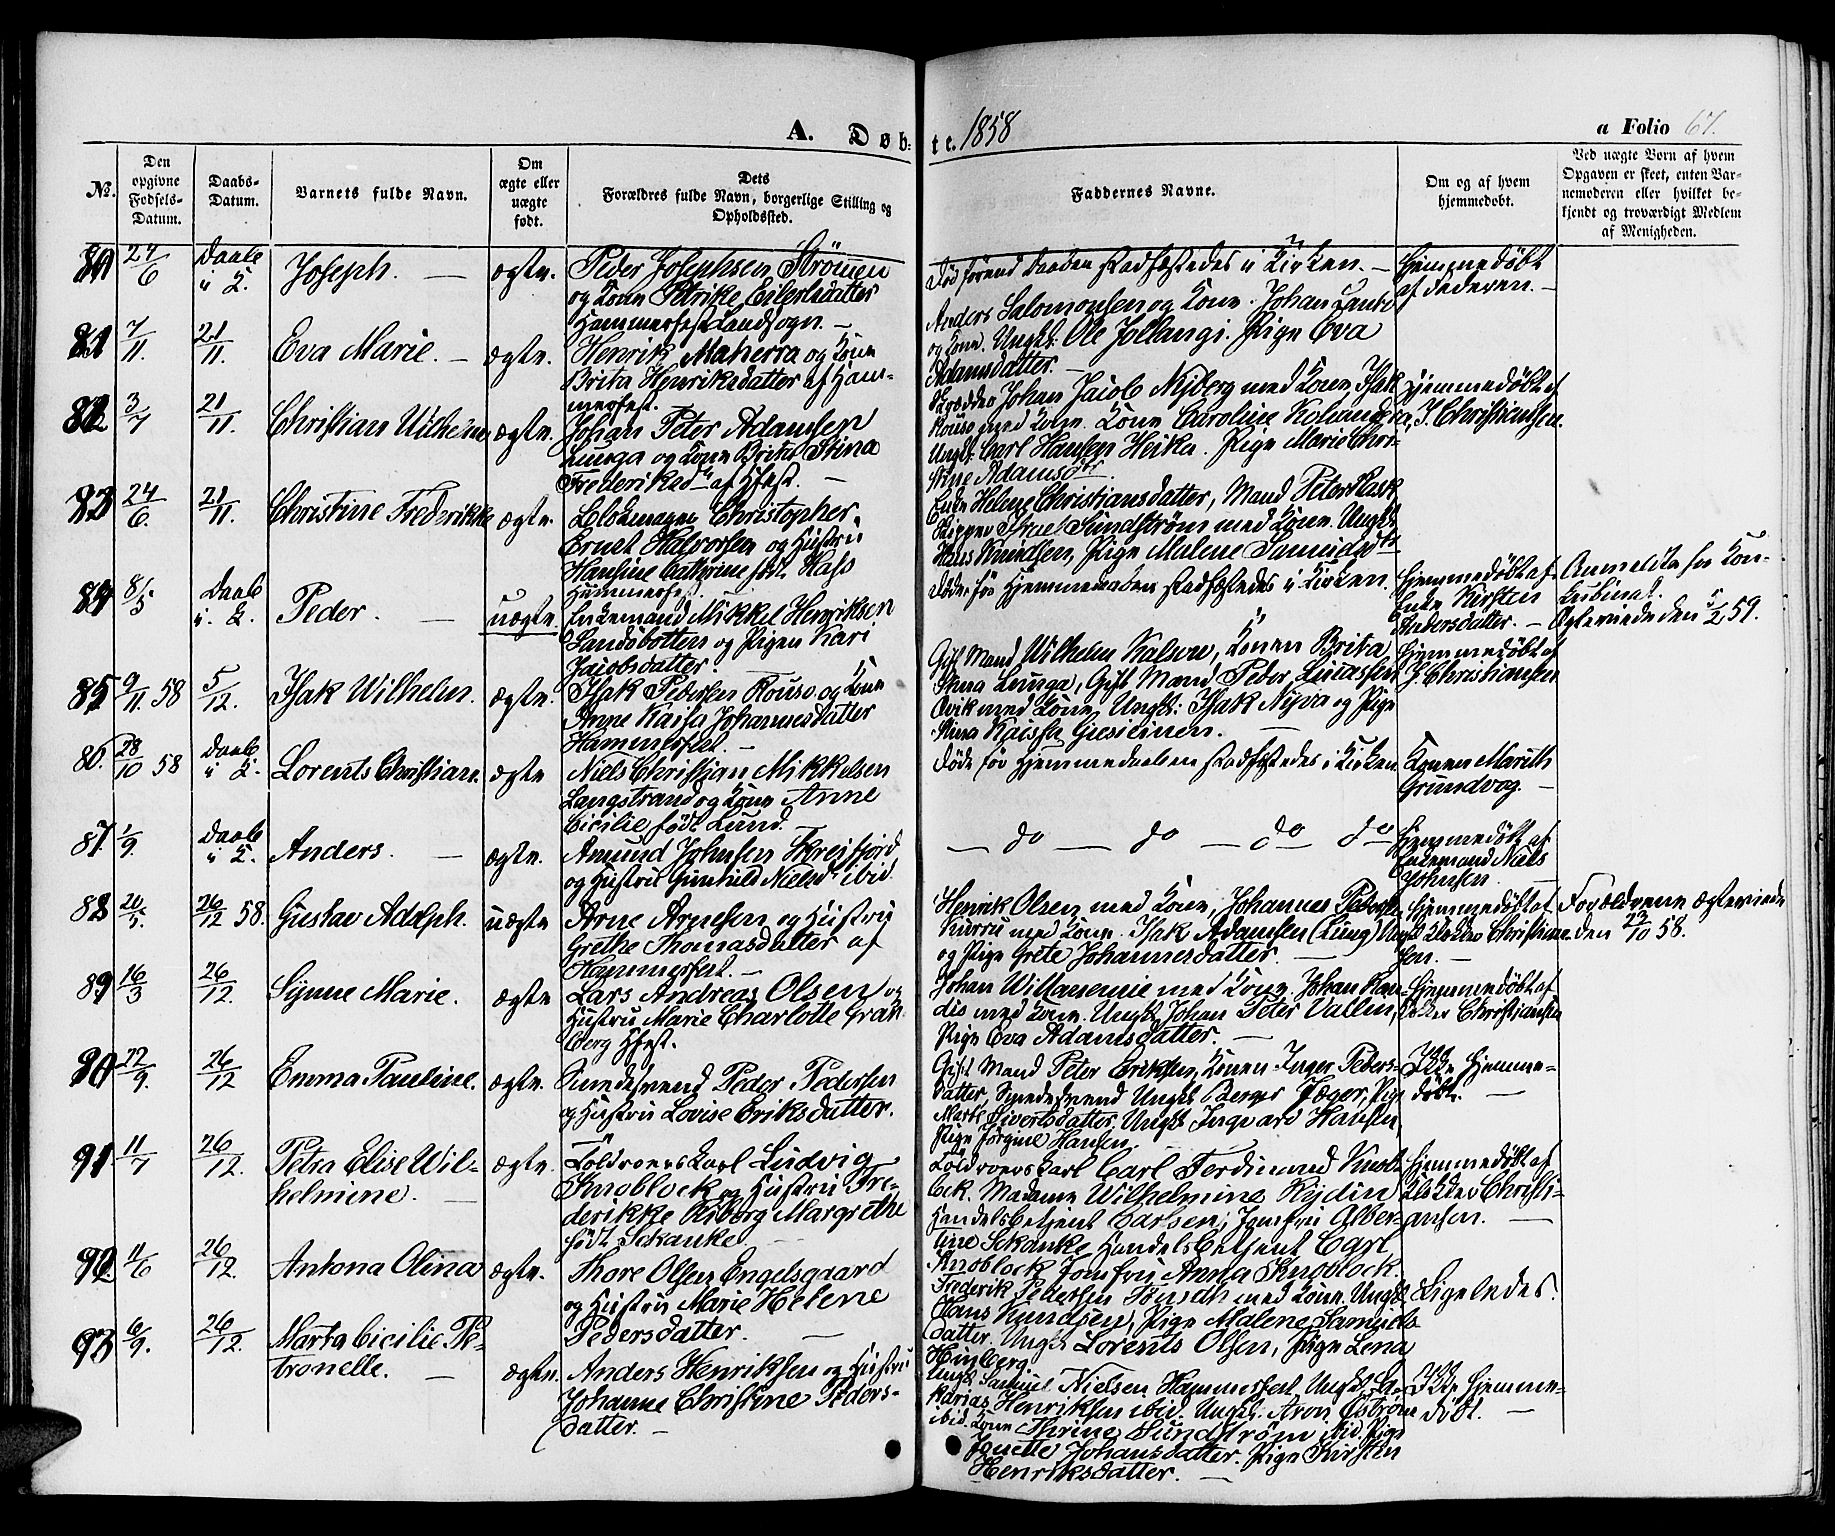 A. Døb-
te. 1858
a Folio 67.
No.
Den opgivne Fødsels-Datum.
Daabs-Datum.
Barnets fulde Navn.
Om ægte eller uægte født.
Dets
Forældres fulde Navn, borgerlige Stilling og
Opholdssted.
Faddernes Navne.
Om og af hvem
hjemmedøbt.
Ved uægte Børn af hvem
Opgaven er skeet, enten Bar-
nemoderen eller hvilket be-
kjendt og troværdigt Medlem
af Menigheden.
80 24/6 Joseph. — ægte. Peder Josephsen Strömen
og Kone Petrike Eilertsdatter
Hammerfest Landsogn. —
Død førend Daaben stadfæstedes i Kirken. —
Hjemmedøbt
af Faderen. —
81 7/11 21/11. Eva Marie. — ægte. Henrik Maherra og Kone
Brita Henriksdatter af Ham-
merfest.
Anders Salomonsen og Kone. Johan
og Kone. Ungk. Ole Jollangi. Pige Eva
Adamsdatter. —
82 3/7 21/11. Christian Wilhelm ægte. Johan Peter Adamsen
Lunga og Kone Brita Stina
Frederiksd. af Hfest. —
Johan Jacob Nyberg med Kone Isak
Rouso med Kone. Kone Caroline
Ungk. Carl Hansen Heika. Pige Marie Chri-
stine Adamsdtr
Hjemmedøbt af
J. Christiansen.
83 24/6 21/11 Christine Frederikke ægte. Christopher
Ernst Halvorsen og Hustru
Hansine Cathrine født Hass
Hammerfest.
Enke Helene Christiansdatter, Mand Peter Rask
Skipper Sundström med Kone. Ungk.
Hans Knudsen, Pige Malene Samuelsdtr
84 8/5 Peder. — uægte. Enkemand Mikkel Henriksen
Sandøbotten og Pigen Kari
Jacobsdatter —
Døde før Hjemmedaaben stadfæstedes i Kirken.
Hjemmedøbt af
Enke Kirsten
Andersdatter. —
Anmeldte for Kon-
kubinat.
Ægteviede den 5/2 59.
85 9/11 58 5/12. Isak Wilhelm. ægte. Isak Pedersen Rouso og Kone
Anne Kaisa Johannesdatter
Hammerfest. —
Gift Mand Wilhelm Kalsow, Konen Brita
Stina Lunga, Gift Mand Peder Lucassen
Qvik med Kone, Ungk: Isak Nyva og Pige
Stina Kaisa
Hjemmedøbt af
J. Christiansen
86. 28/10 58 Lorents Christian. ægte Niels Christian Mikkelsen
Langstrand og Kone Anne
Cicilie født Lund. —
Døde før Hjemmedaaben stadfæstedes i Kirken
Konen Marith
Grundvog. —
87 1/9. Anders. — ægte. Amund Johnsen
og Hustru Gunhild Nielsd. ibid.
— do — do — do do
Hjemmedøbt af
Enkemand Niels
Johnsen
88 20/5. 26/12 58. Gustav Adolph. uægte Arne Arnesen og Hustru
Grethe Thomasdatter af
Hammerfest. —
Henrik Olsen med Kone, Johannes Pedersen
Kurru med Kone. Isak Adamsen (Lung) Ungk.
og Pige Grete Johannesdatter. —
Hjemmedøbt af
Klokker Christian-
sen. —
Forældrene ægteviede
den 23/10 58.
89 16/3 26/12. Synne Marie. ægte Lars Andreas Olsen og
Hustru Marie Charlotte Gran-
berg Hfest.
Johan med Kone. Johan
med Kone. Ungk. Johan Peter Vallen,
Pige Eva Adamsdatter. —
Hjemmedøbt af
Klokker Christiansen
90 22/9. 26/12 Emma Pauline. ægte. Smedesvend Peder Pedersen
og Hustru Lovise Eriksdatter.
Gift Mand Peter Eriksen, Konen Inger Peders-
datter, Smedesvend Ungk. Berger Jæger, Pige
Marte Sivertsdatter. Ungk. Ingvard Hansen,
Pige Jörgine Hansen.
Ikke Hjemme-
døbt. —
91 11/7 26/12. Petra Elise Wil-
helmine. — ægte. Toldroerskarl Ludvig
Knoblock og Hustru Fre-
derikke Margrethe
født Schanke. —
Toldroerskarl Carl Ferdinand Knob-
lock. Madame Wilhelmine Rydin
Handelsbetjent Carlsen, Jomfru Alber-
tine Schanke Handelsbetjent Carl
Knoblock Jomfru Anna Knoblock.
Hjemmedøbt af
Klokker Christi-
ansen. —
92 11/6 26/12. Antona Olina ægte. Thore Olsen Engelsgaard
og Hustru Marie Helene
Pedersdatter. —
Frederik Pedersen med Kone. Ungk.
Hans Knudsen, Pige Malene Samuels
datter. Ungk. Lorents Olsen, Pige Lena
Hinberg
Ligeledes.
93 6/9. 26/12. Marta Cicilie Pe-
tronelle. — ægte. Anders Henriksen og Hustru
Johanne Christine Peders-
datter. —
Ungk. Samuel Nielsen Hammerfest Ungk. Za-
karias Henriksen ibid. Ungk. Aron Öström
ibid. Kone Thrine Sundström ibid. Pige
Janette Johansdatter. Pige Kirsten
Henriksdatter. —
Ikke Hjemme-
døbt. —